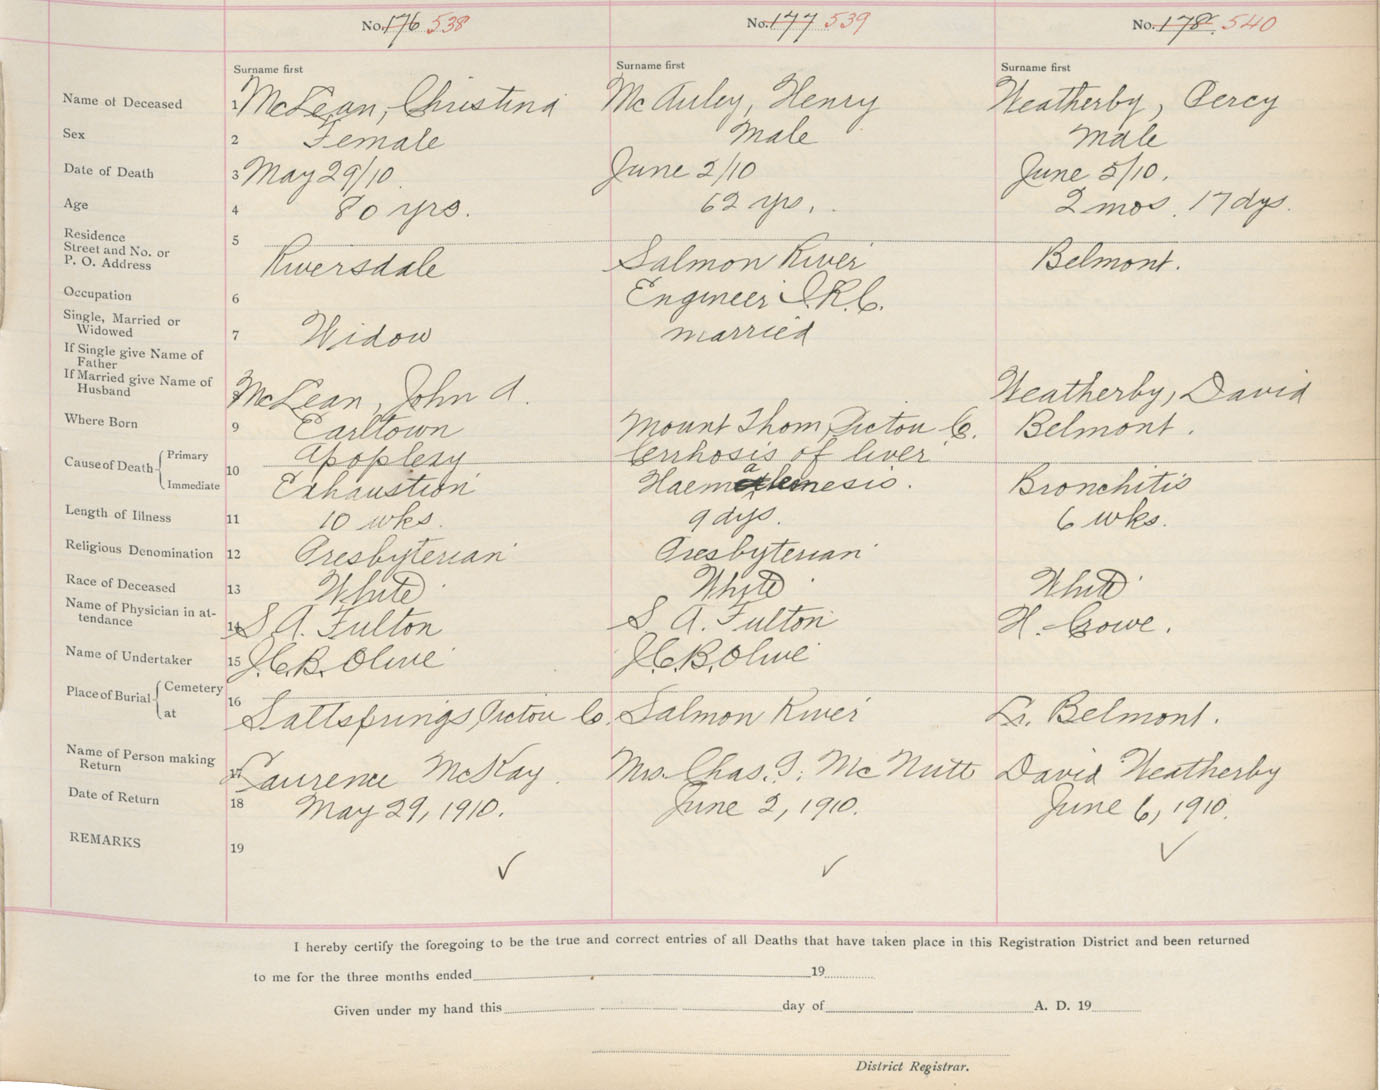 No. 176 538 No. 177 539 No. 178 540
Surname first Surname first Surname first
Name of Deceased 1 McLean, Christina McAuley, Henry Weatherby, Percy
Sex 2 Female Male Male
Date of Death 3 May 29/10. June 2/10 June 5/10.
Age 4 80 yrs. 62 yrs. 2 mos. 17 dys.
Residence
Street and No. or
P. O. Address 5 Riversdale Salmon River Belmont.
Occupation 6 Engineer I.R.C.
Single, Married or
Widowed 7 Widow married
If Single give Name of
Father
If Married give Name of
Husband 8 McLean, John A. Weatherby, David
Where Born 9 Earltown Mount Thom, Pictou Co. Belmont.
Cause of Death Primary 10 Apoplexy Cirrhosis of liver
Immediate Exhaustion Haematemesis. Bronchitis
Length of Illness 11 10 wks. 9 dys. 6 wks.
Religious Denomination 12 Presbyterian Presbyterian
Race of Deceased 13 White White White
Name of Physician in at-
tendance 14 S. A. Fulton S. A. Fulton H. Crowe.
Name of Undertaker 15 J.C.B. Olive J.C.B. Olive
Place of Burial Cemetery 16
at Saltsprings, Pictou Co. Salmon River Belmont.
Name of Person making
Return 17 Laurence McKay. Mrs. Chas. McNutt David Weatherby
Date of Return 18 May 29, 1910. June 2, 1910. June 6, 1910.
REMARKS 19
✓ ✓ ✓
I hereby certify the foregoing to be the true and correct entries of all Deaths that have taken place in this Registration District and been returned
to me for the three months ended 19
Given under my hand this day of A. D. 19
District Registrar.